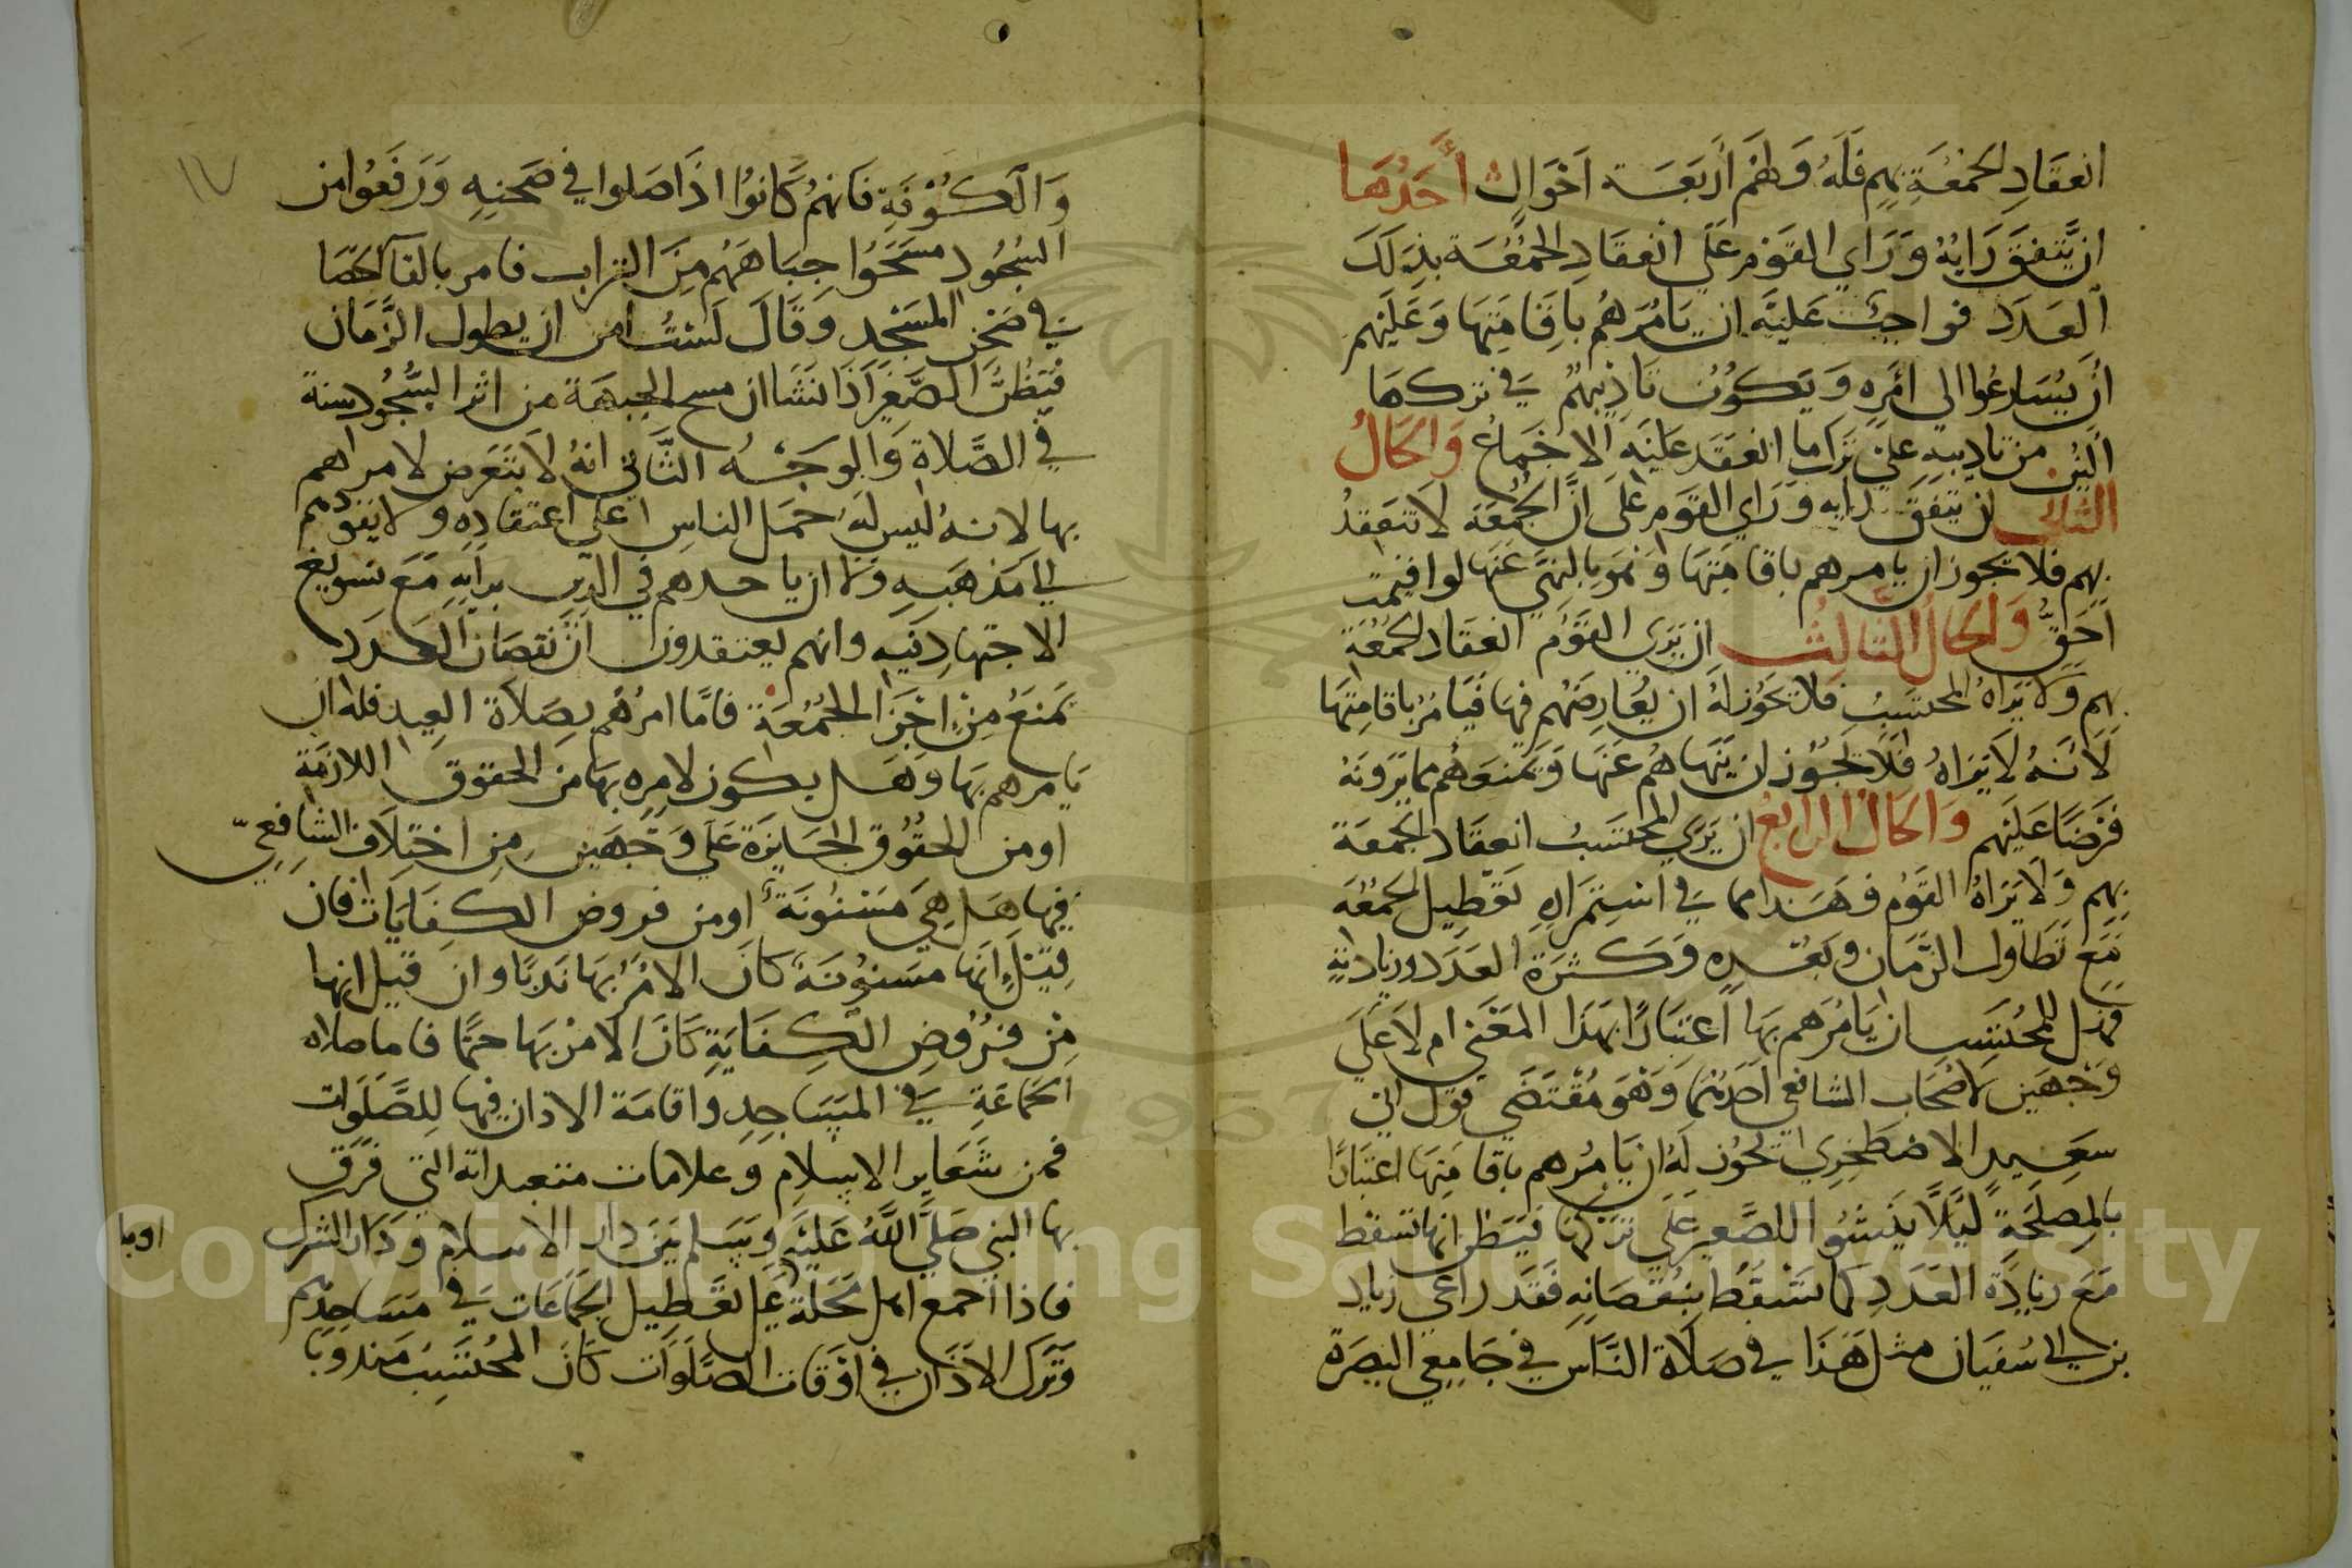 انعقاد الجمعة بهم فله ولهم اربعة احوال أحدها
ان يتفق رايه وراي القوم على انعقاد الجمعة بذلك
العدد فواجب عليه ان يامرهم باقامتها وعليهم
ان يسارعوا الى امره ويكون تاديبهم في تركها
الين من تاديبه على ترك ما انعقد عليه الاجماع والحال
الثاني ان يتفق رايه وراي القوم على ان الجمعة لا تنعقد
بهم فلا يجوز ان يامرهم باقامتها وهو بالنهي عنها لو اقيمت
احق والحال الثالث ان يرى القوم انعقاد الجمعة
بهم ولا يراه المحتسب فلا يجوز له ان يعارضهم فيها فيامر باقامتها
لانه لا يراه فلا يجوز ان ينهاهم عنها ويمنعهم مما يرونه
فرضا عليهم والحال الرابع ان يرى المحتسب انعقاد الجمعة
بهم ولا يراه القوم فهذا مما في استمراره تعطيل الجمعة
مع تطاول الزمان وبعده وكثرة العدد وزيادته
فهل للمحتسب ان يامرهم بها اعتبارا بهذا المعنى ام لا على
وجهين لاصحاب الشافعي احدهما وهو مقتضى قول ابي
سعيد الاصطخري يجوز له ان يامرهم باقامتها اعتبارا
بالمصلحة ليلا ينشوا الصغير على تركها فيظن انها تسقط
مع زيادة العدد كما تسقط بنقصانه فقد راعى زياد
بن ابي سفيان مثل هذا في صلاة الناس في جامعي البصرة
١٧
والكوفة فانهم كانوا اذا صلوا في صحنه ورفعوا من
السجود مسحوا جباههم من التراب فامر بالقا الحصا
في صحن المسجد وقال لست امن ان يطول الزمان
فيظن الصغير اذا نشا ان مسح الجبهة من اثر السجود سنة
في الصلاة والوجه الثاني انه لا يتعرض لامراهم
بها لانه ليس له حمل الناس على اعتقاده ولا يقودهم
الى مذهبه ولا ان ياخذهم في الدين برايه مع تسويغ
الاجتهاد فيه وانهم يعتقدون ان نقصان العدد
يمنع من اجزا الجمعة فاما امرهم بصلاة العيد فله ان
يامرهم بها وهل يكون لامره بها من الحقوق اللازمة
او من الحقوق الجايزة على وجهين من اختلاف الشافعي
فيها هل هي مسنونة او من فروض الكفايات فان
قيل انها مسنونة كان الامر بها ندبا وان قيل انها
من فروض الكفاية كان الامر بها حتما فاما صلاه
الجماعة في المساجد واقامة الاذان فيها للصلوات
فمن شعاير الاسلام وعلامات متعبداته التي فرق
بها النبي صلى الله عليه وسلم بين دار الاسلام ودار الشرك
فاذا اجمع اهل محلة على تعطيل الجماعات في مساجدهم
وترك الاذان في اوقات الصلوات كان المحتسب مندوبا
Copyright © King Saud University
1957